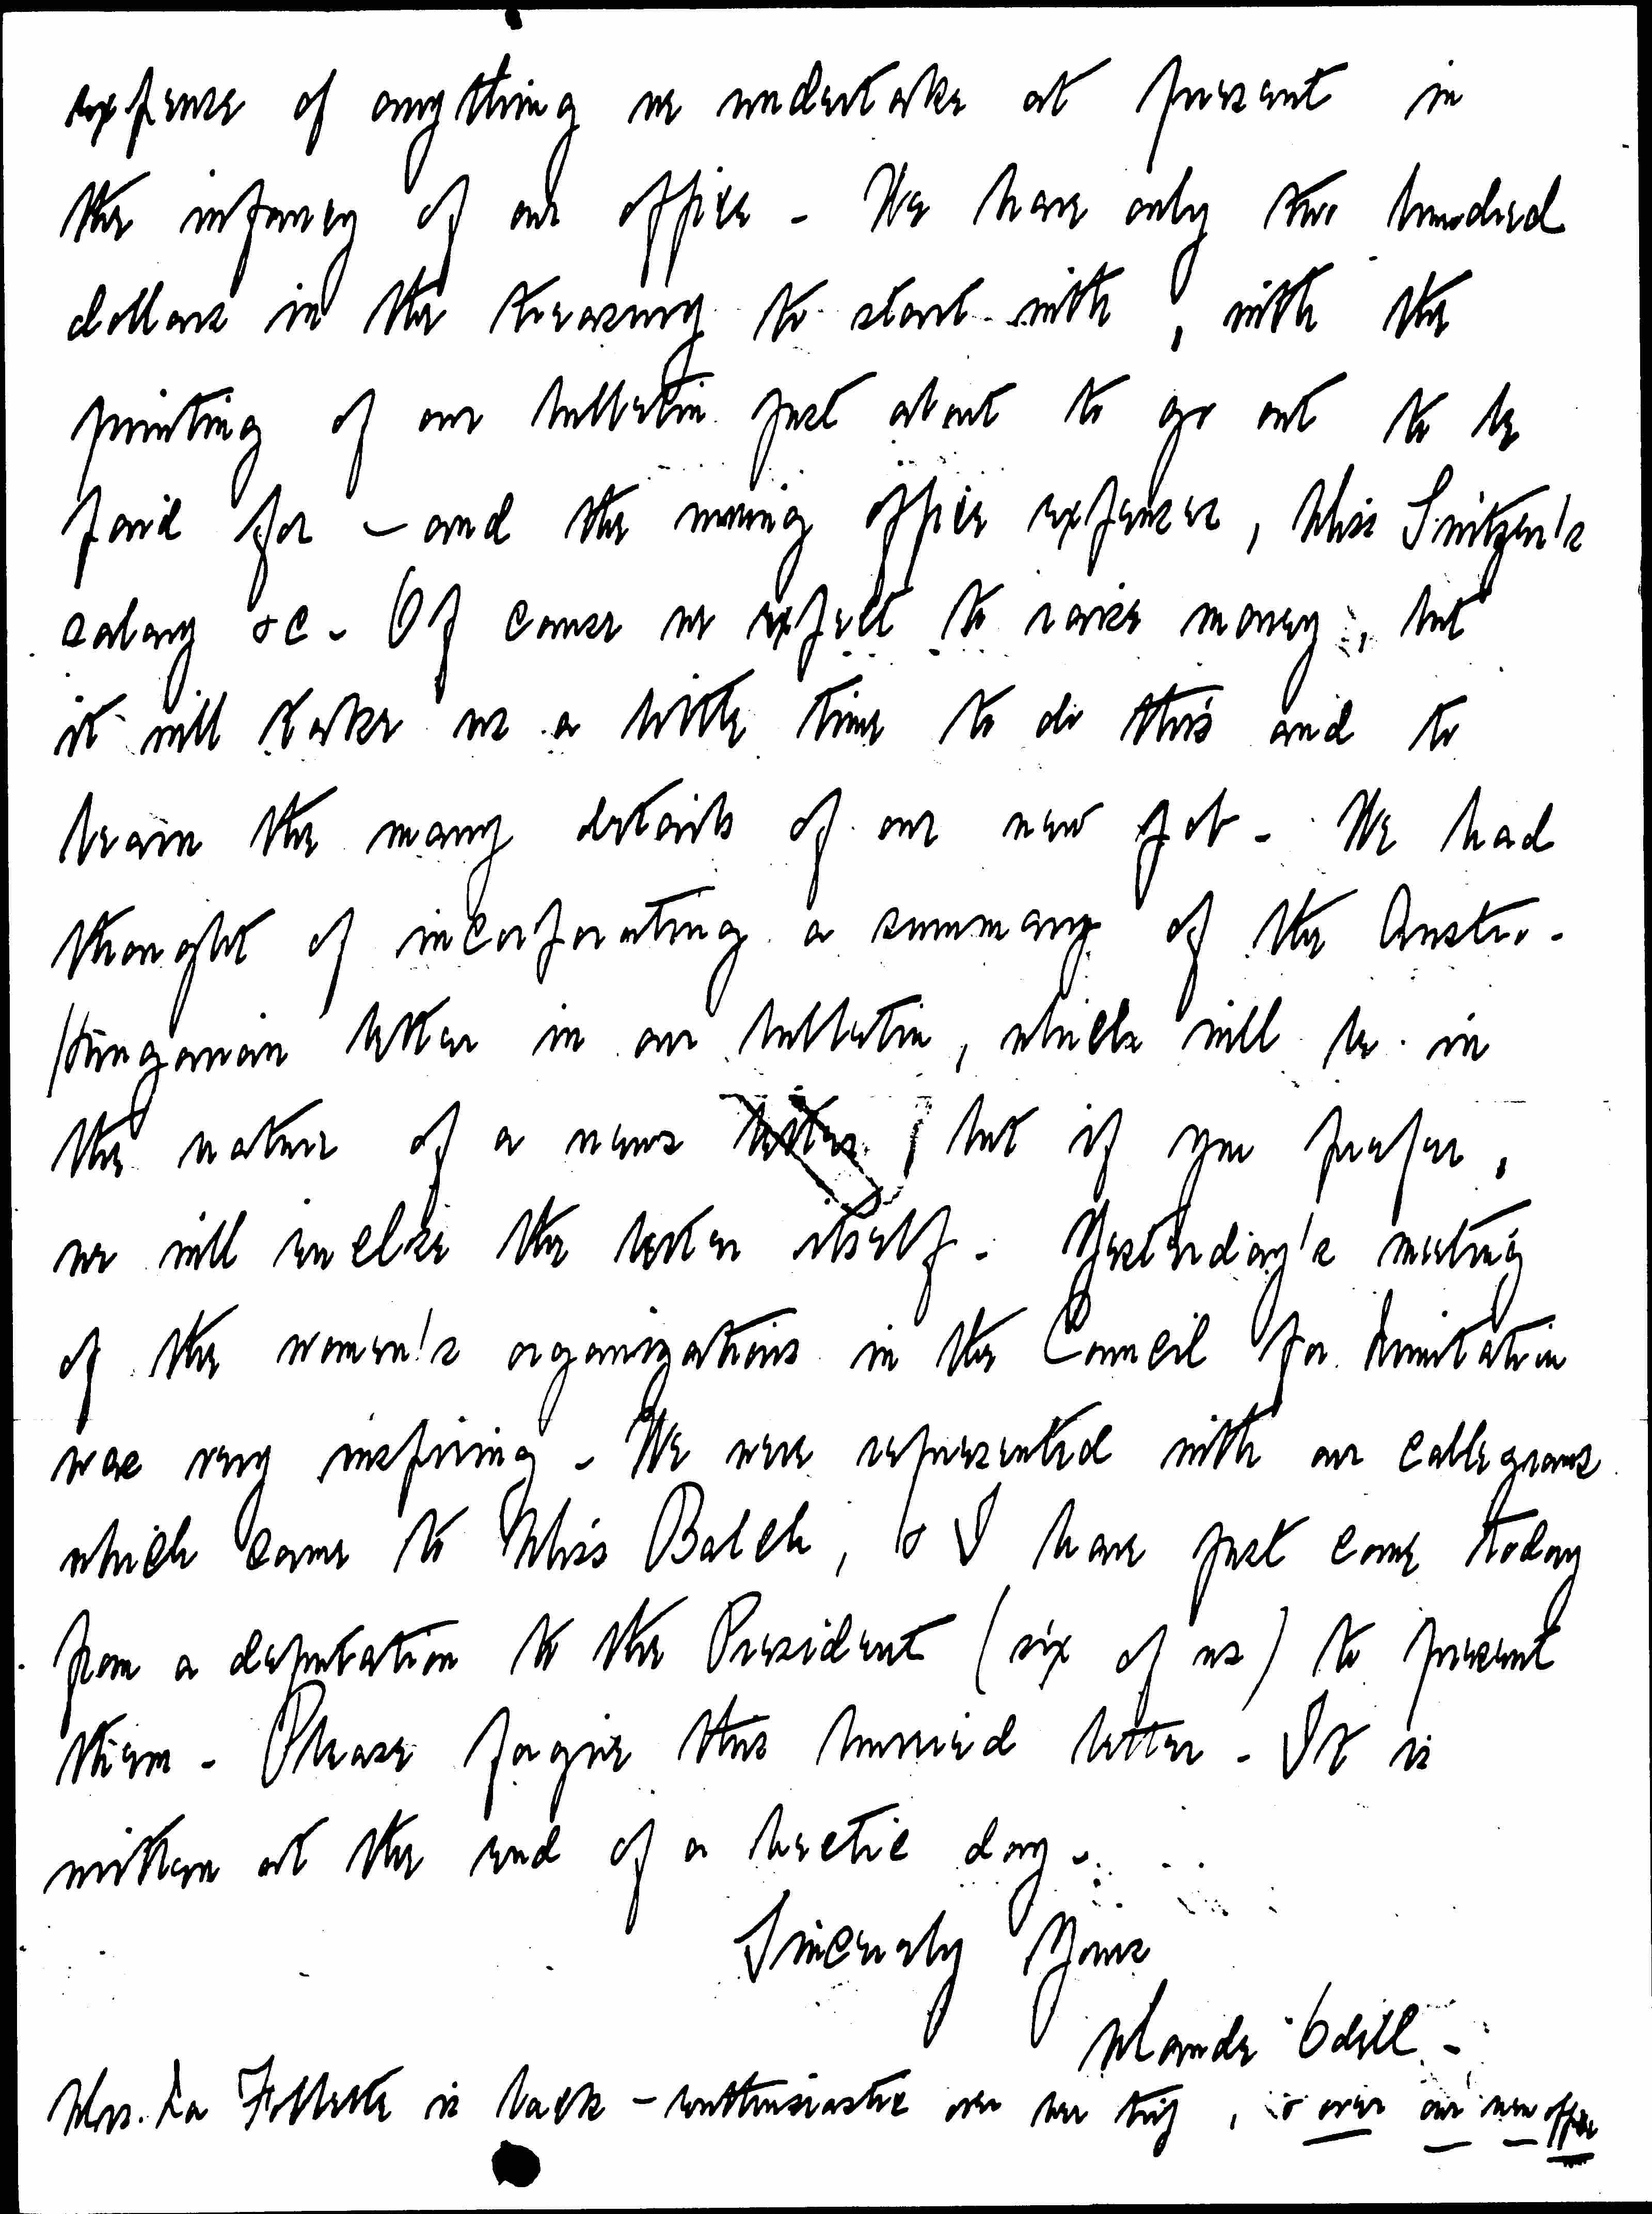 expense of anything we undertake at present in
the infancy of our office - We have only two hundred
dollars in the treasury to start with, with the
printing of our bulletin just about to go out to be
paid for - and the moving office expenses, Miss Switzer's
salary &c - Of course we expect to raise money, but
it will take us a little time to do this and to
learn the many details of our new job - We had
thought of incorporating a summary of the Austro-
Hungarian letter in our bulletin, which will be in
the nature of a news letter, but if you prefer,
we will enclose the letter itself - Yesterday's meeting
of the women's organizations in the Council for Limitation
was very inspiring - We were represented with our cablegrams
which came to Miss Balch, & I have just come today
from a deputation to the President (six of us) to present
them - Please forgive this hurried letter - It is
written at the end of a hectic day -
Sincerely Yours
Maude Odell -
Mrs. La Follette is back - enthusiastic over her trip, & over our new office